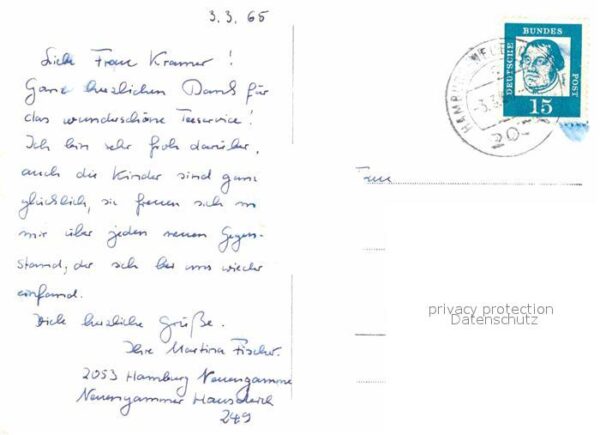 3.3.65
Liebe Frau Kramer!
Ganz herzlichen Dank für
das wunderschöne Teeservice!
Ich bin sehr froh darüber,
auch die Kinder sind ganz
glücklich, sie freuen sich mit
mir über jeden neuen Gegen-
stand, der sich bei uns wieder
einfand.
Viele herzliche Grüße.
Ihre Martina Fischer.
2053 Hamburg Neuengamme
Neuengammer Hausdeich
249
DEUTSCHE BUNDES POST
15
HAMBURG
-3.3.
Frau
privacy protection
Datenschutz